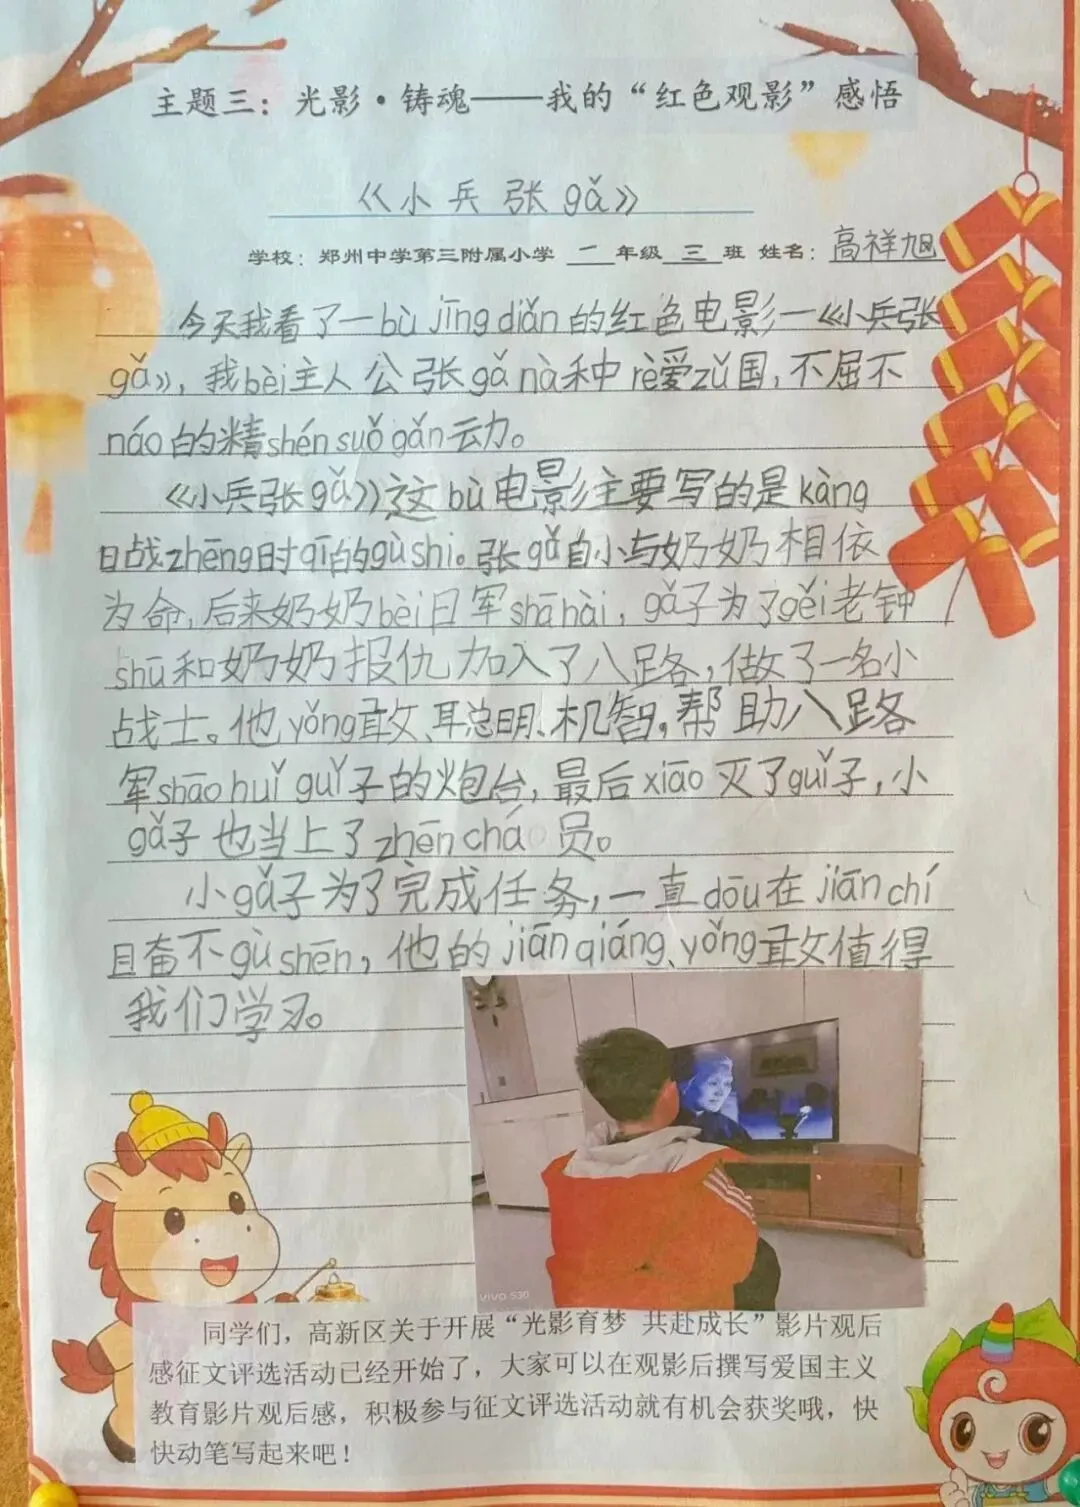 主题三：光影·铸魂——我的“红色观影”感悟
《小兵张gǎ》
学校：郑州中学第三附属小学 一 年级 三 班 姓名：高祥旭
今天我看了一bù jīng diǎn的红色电影一《小兵张
gǎ》，我bèi主人公张gǎ nà种rè爱zǔ国，不屈不
náo的精shén suǒ gǎn云力。
《小兵张gǎ》这bù电影主要写的是kàng
日战zhēng时qī的gù shi。张gǎ自小与奶奶相依
为命，后来奶奶bèi日军shā hài，gǎ子为了gěi老钟
shū和奶奶报仇加入了八路，做了一名小
战士。他yǒng敢、聪明、机智，帮助八路
军shāo huǐ guǐ子的炮台，最后xiāo灭了guǐ子，小
gǎ子也当上了zhēn chá员。
小gǎ子为了完成任务，一直dōu在jiān chí
且奋不gù shēn，他的jiān qiáng、yǒng敢值得
我们学习。
vivo S30
同学们，高新区关于开展“光影育梦 共赴成长”影片观后
感征文评选活动已经开始了，大家可以在观影后撰写爱国主义
教育影片观后感，积极参与征文评选活动就有机会获奖哦，快
快动笔写起来吧！